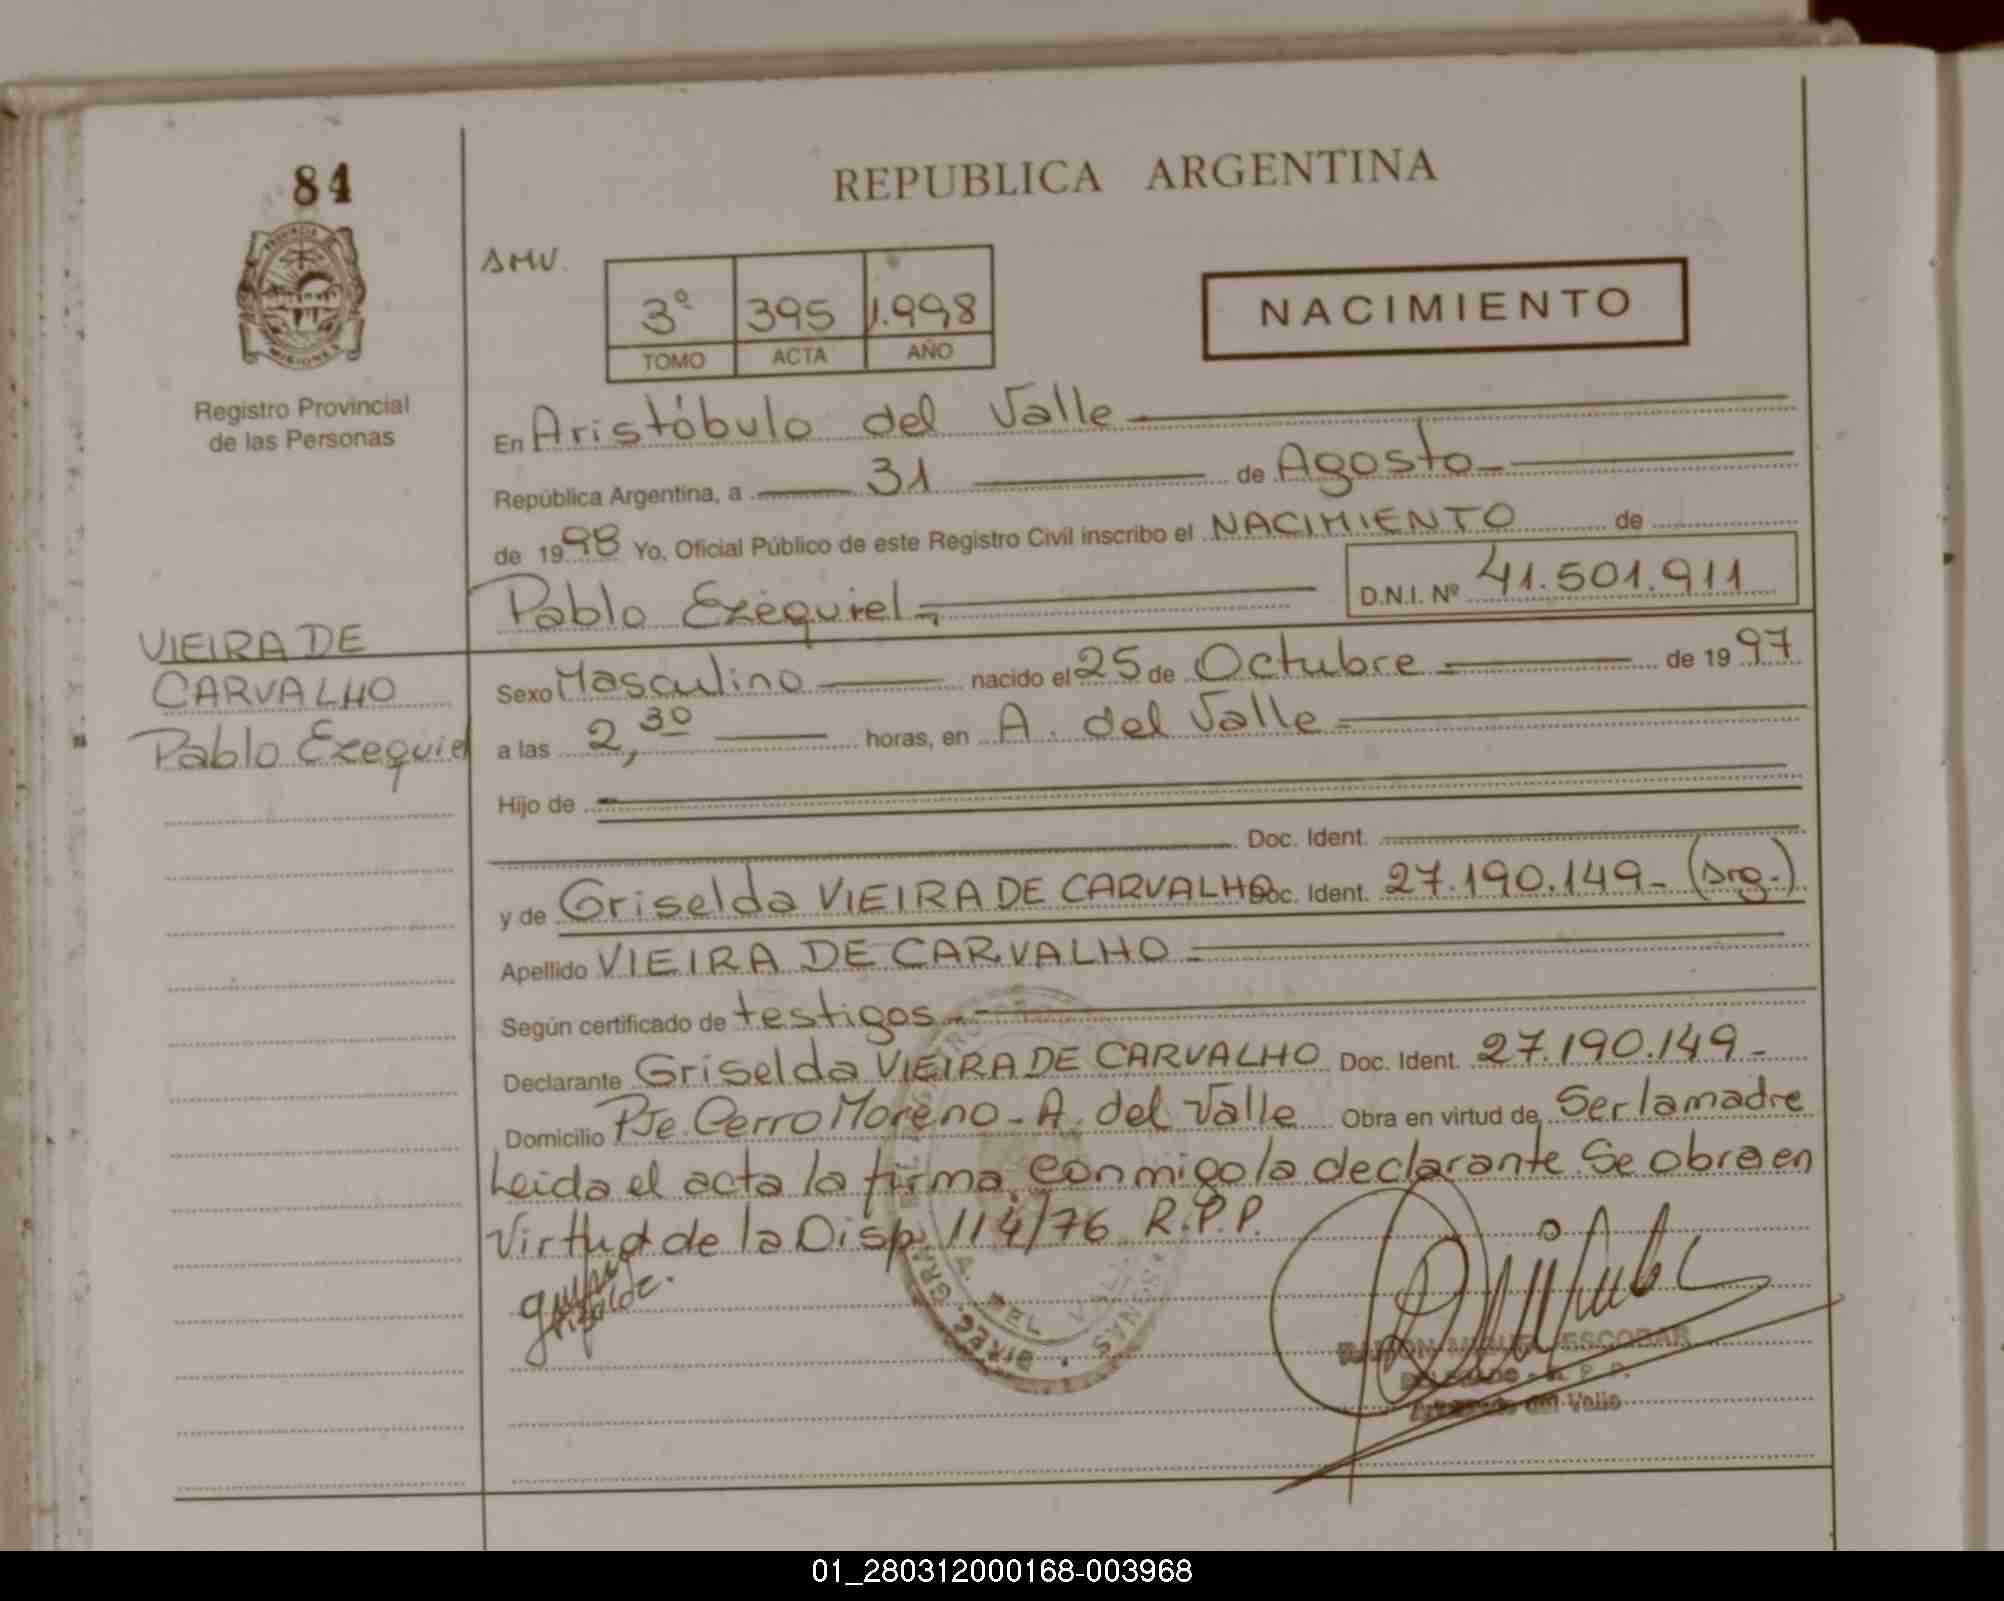 84
REPUBLICA ARGENTINA
AMV.
3º 395 1.998
TOMO ACTA AÑO
NACIMIENTO
PROVINCIA DE
MISIONES
Registro Provincial
de las Personas
En Aristóbulo del Valle
República Argentina, a 31 de Agosto
de 1998 Yo, Oficial Público de este Registro Civil inscribo el NACIMIENTO de
Pablo Ezequiel D.N.I. Nº 41.501.911
VIEIRA DE
CARVALHO
Pablo Ezequiel
Sexo Masculino nacido el 25 de Octubre de 1997
a las 2,30 horas, en A. del Valle
Hijo de
Doc. Ident.
y de Griselda VIEIRA DE CARVALHO Doc. Ident. 27.190.149- (Arg.)
Apellido VIEIRA DE CARVALHO
Según certificado de testigos
Declarante Griselda VIEIRA DE CARVALHO Doc. Ident. 27.190.149-
Domicilio Pje Cerro Moreno - A. del Valle Obra en virtud de Ser la madre
Leida el acta la firma conmigo la declarante. Se obra en
virtud de la Disp. 114/76 R.P.P.
Griselda.
RAMON MIGUEL ESCOBAR
DELEGADO - R. P. P.
del Valle
01_280312000168-003968